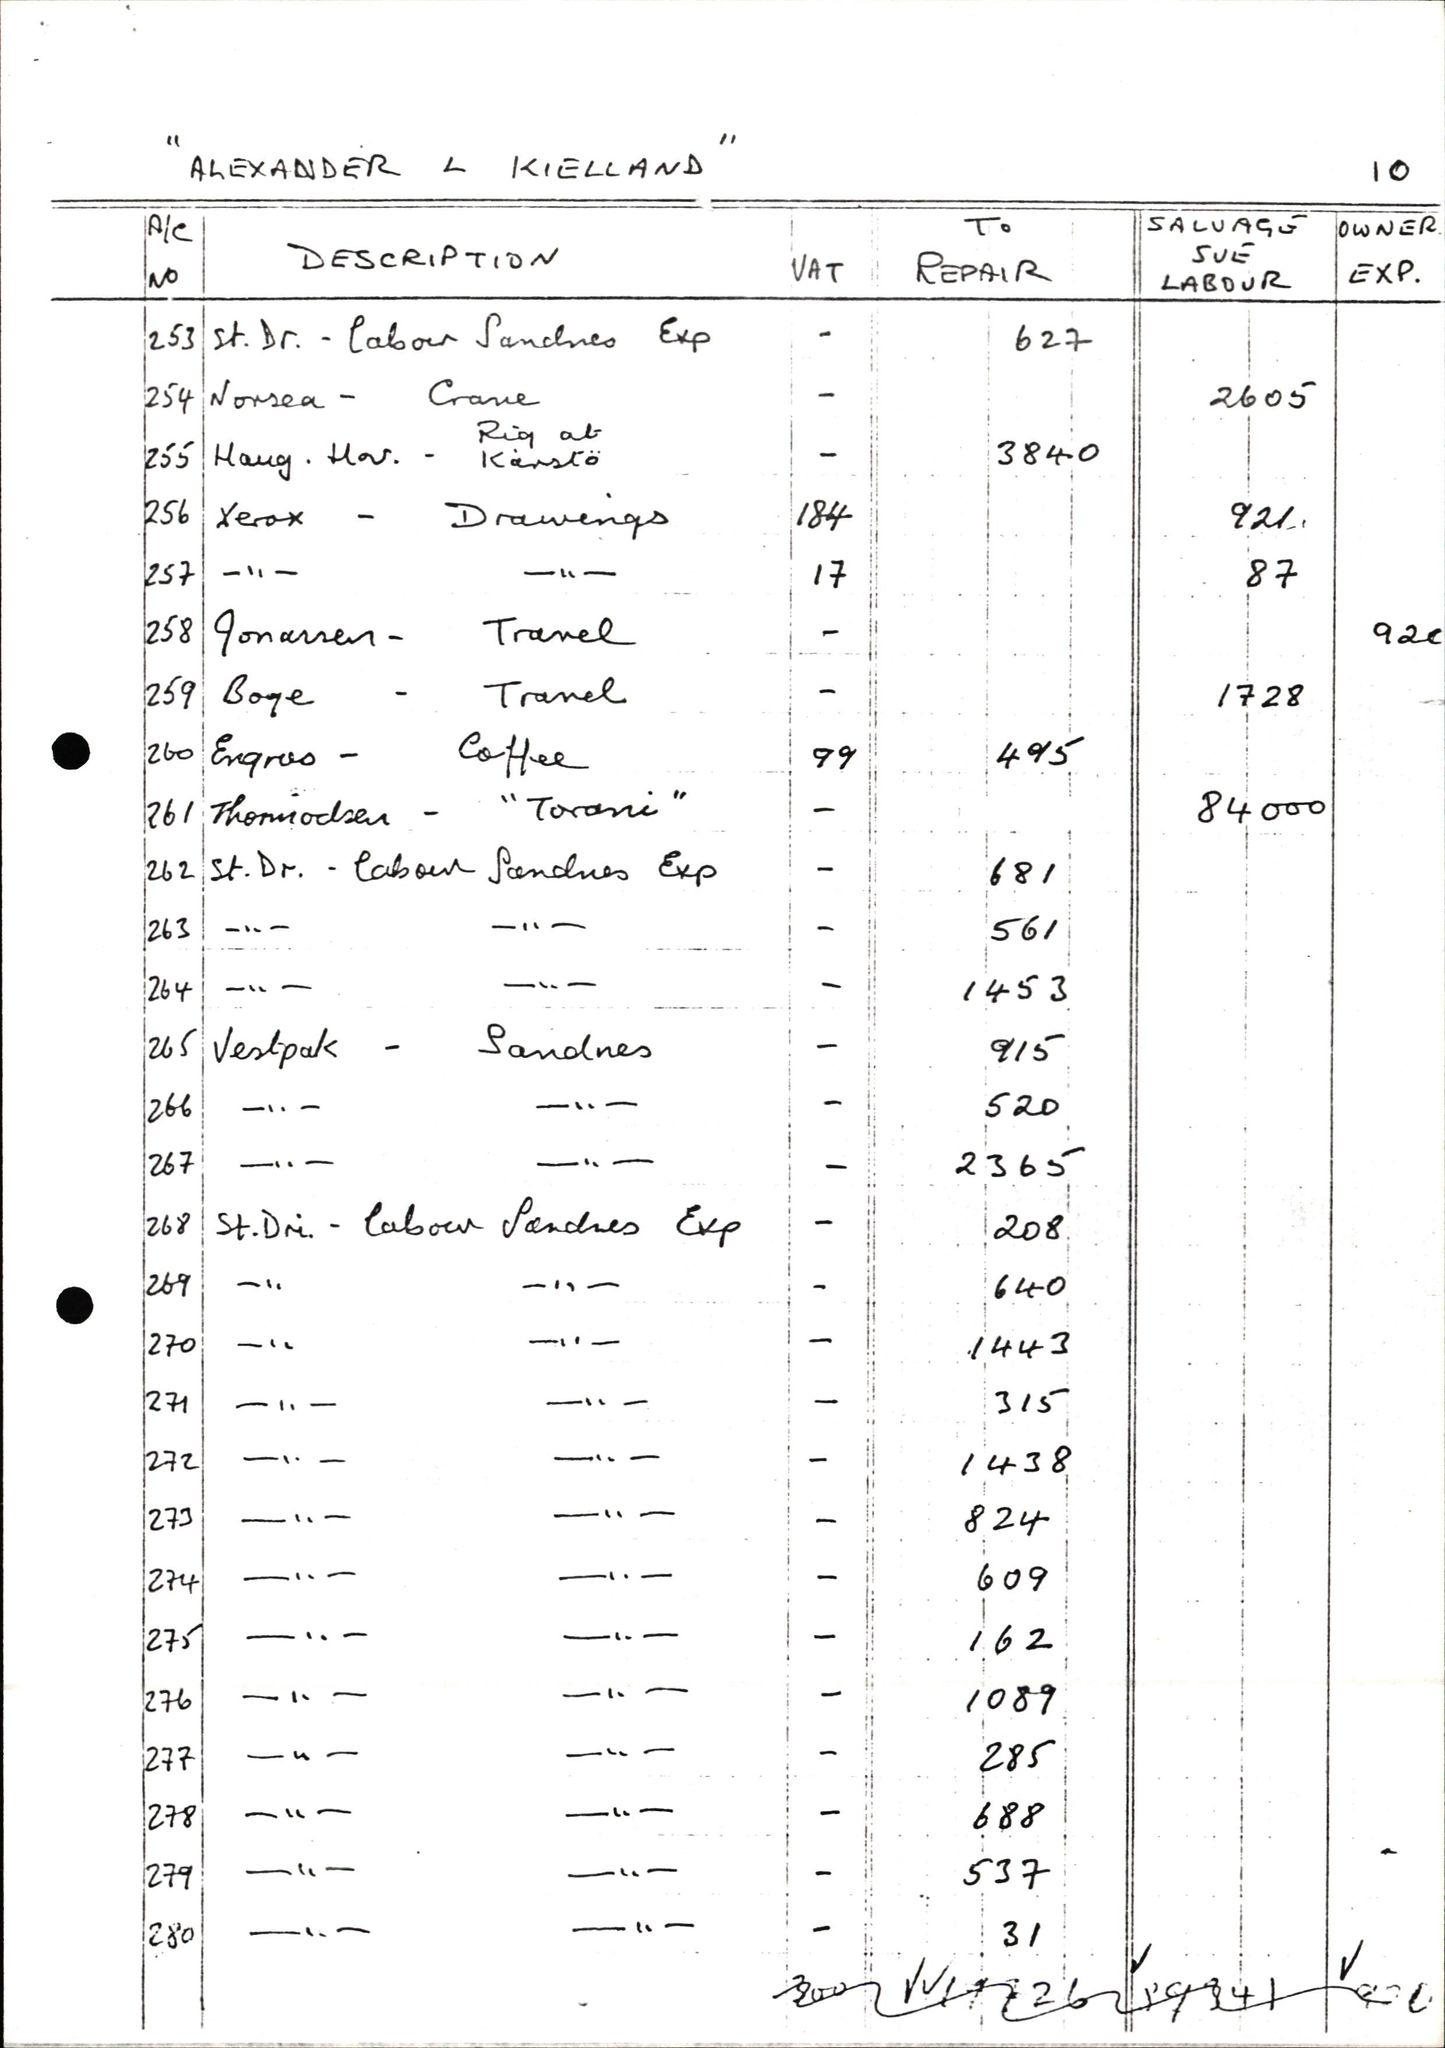 "ALEXANDER L KIELLAND" 10
A/C NO DESCRIPTION VAT TO REPAIR SALVAGE SUE LABOUR OWNER EXP.
253 St. Dr. - Labour Sandnes Exp - 627
254 Norsea - Crane - 2605
255 Haug. Hav. - Rig at Kårstö - 3840
256 Xerox - Drawings 184 921
257 —"— —"— 17 87
258 Jonassen - Travel - 920
259 Boye - Travel - 1728
260 Engros - Coffee 99 495
261 Thormodsen - "Torani" - 84000
262 St. Dr. - Labour Sandnes Exp - 681
263 —"— —"— - 561
264 —"— —"— - 1453
265 Vestpak - Sandnes - 915
266 —"— —"— - 520
267 —"— —"— - 2365
268 St. Dri. - Labour Sandnes Exp - 208
269 —" —"— - 640
270 —" —"— - 1443
271 —"— —"— - 315
272 —"— —"— - 1438
273 —"— —"— - 824
274 —"— —"— - 609
275 —"— —"— - 162
276 —"— —"— - 1089
277 —"— —"— - 285
278 —"— —"— - 688
279 —"— —"— - 537
280 —"— —"— - 31
300